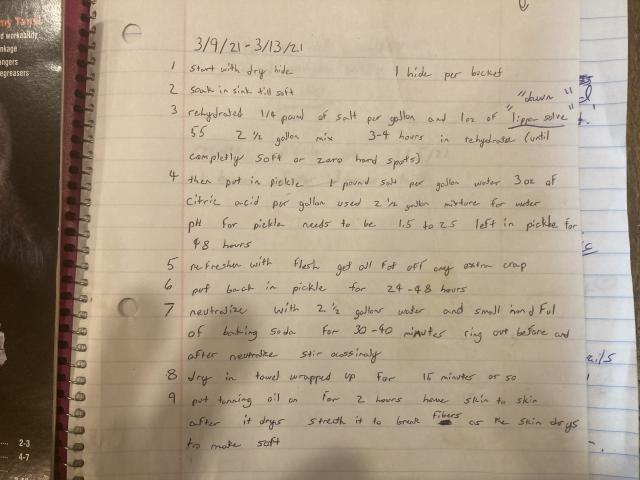 my Tans!
d workability
nkage
angers
egreasers
2-3
4-7
3/9/21 - 3/13/21
1 start with dry hide 1 hide per bucket
2 soak in sink till soft
"dawn"
3 rehydrated 1/4 pound of salt per gallon and 1oz of "lippo solve"
55 2 1/2 gallon mix 3-4 hours in rehydrate (until
completly soft or zero hard spots)
4 then put in pickle 1 pound salt per gallon water 3 oz of
Citric acid per gallon used 2 1/2 gallon mixture for water
pH for pickle needs to be 1.5 to 2.5 left in pickle for
48 hours
5 reflesher with flesh get all fat off any extra crap
6 put back in pickle for 24-48 hours
7 neutralize with 2 1/2 gallons water and small hand ful
of baking soda for 30-40 minutes ring out before and
after neutralize stir acossinaly
8 dry in towel wrapped up for 15 minutes or so
9 put tanning oil on for 2 hours have skin to skin
after it drys streth it to break fibers as the skin drys
to make soft
ails